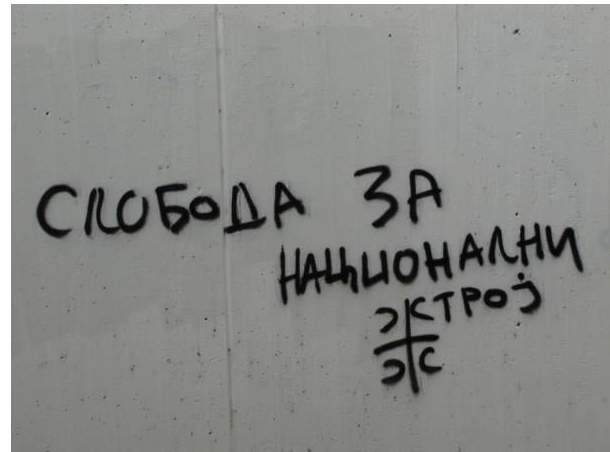 СЛОБОДА ЗА
НАЦИОНАЛНИ
СТРОЈ